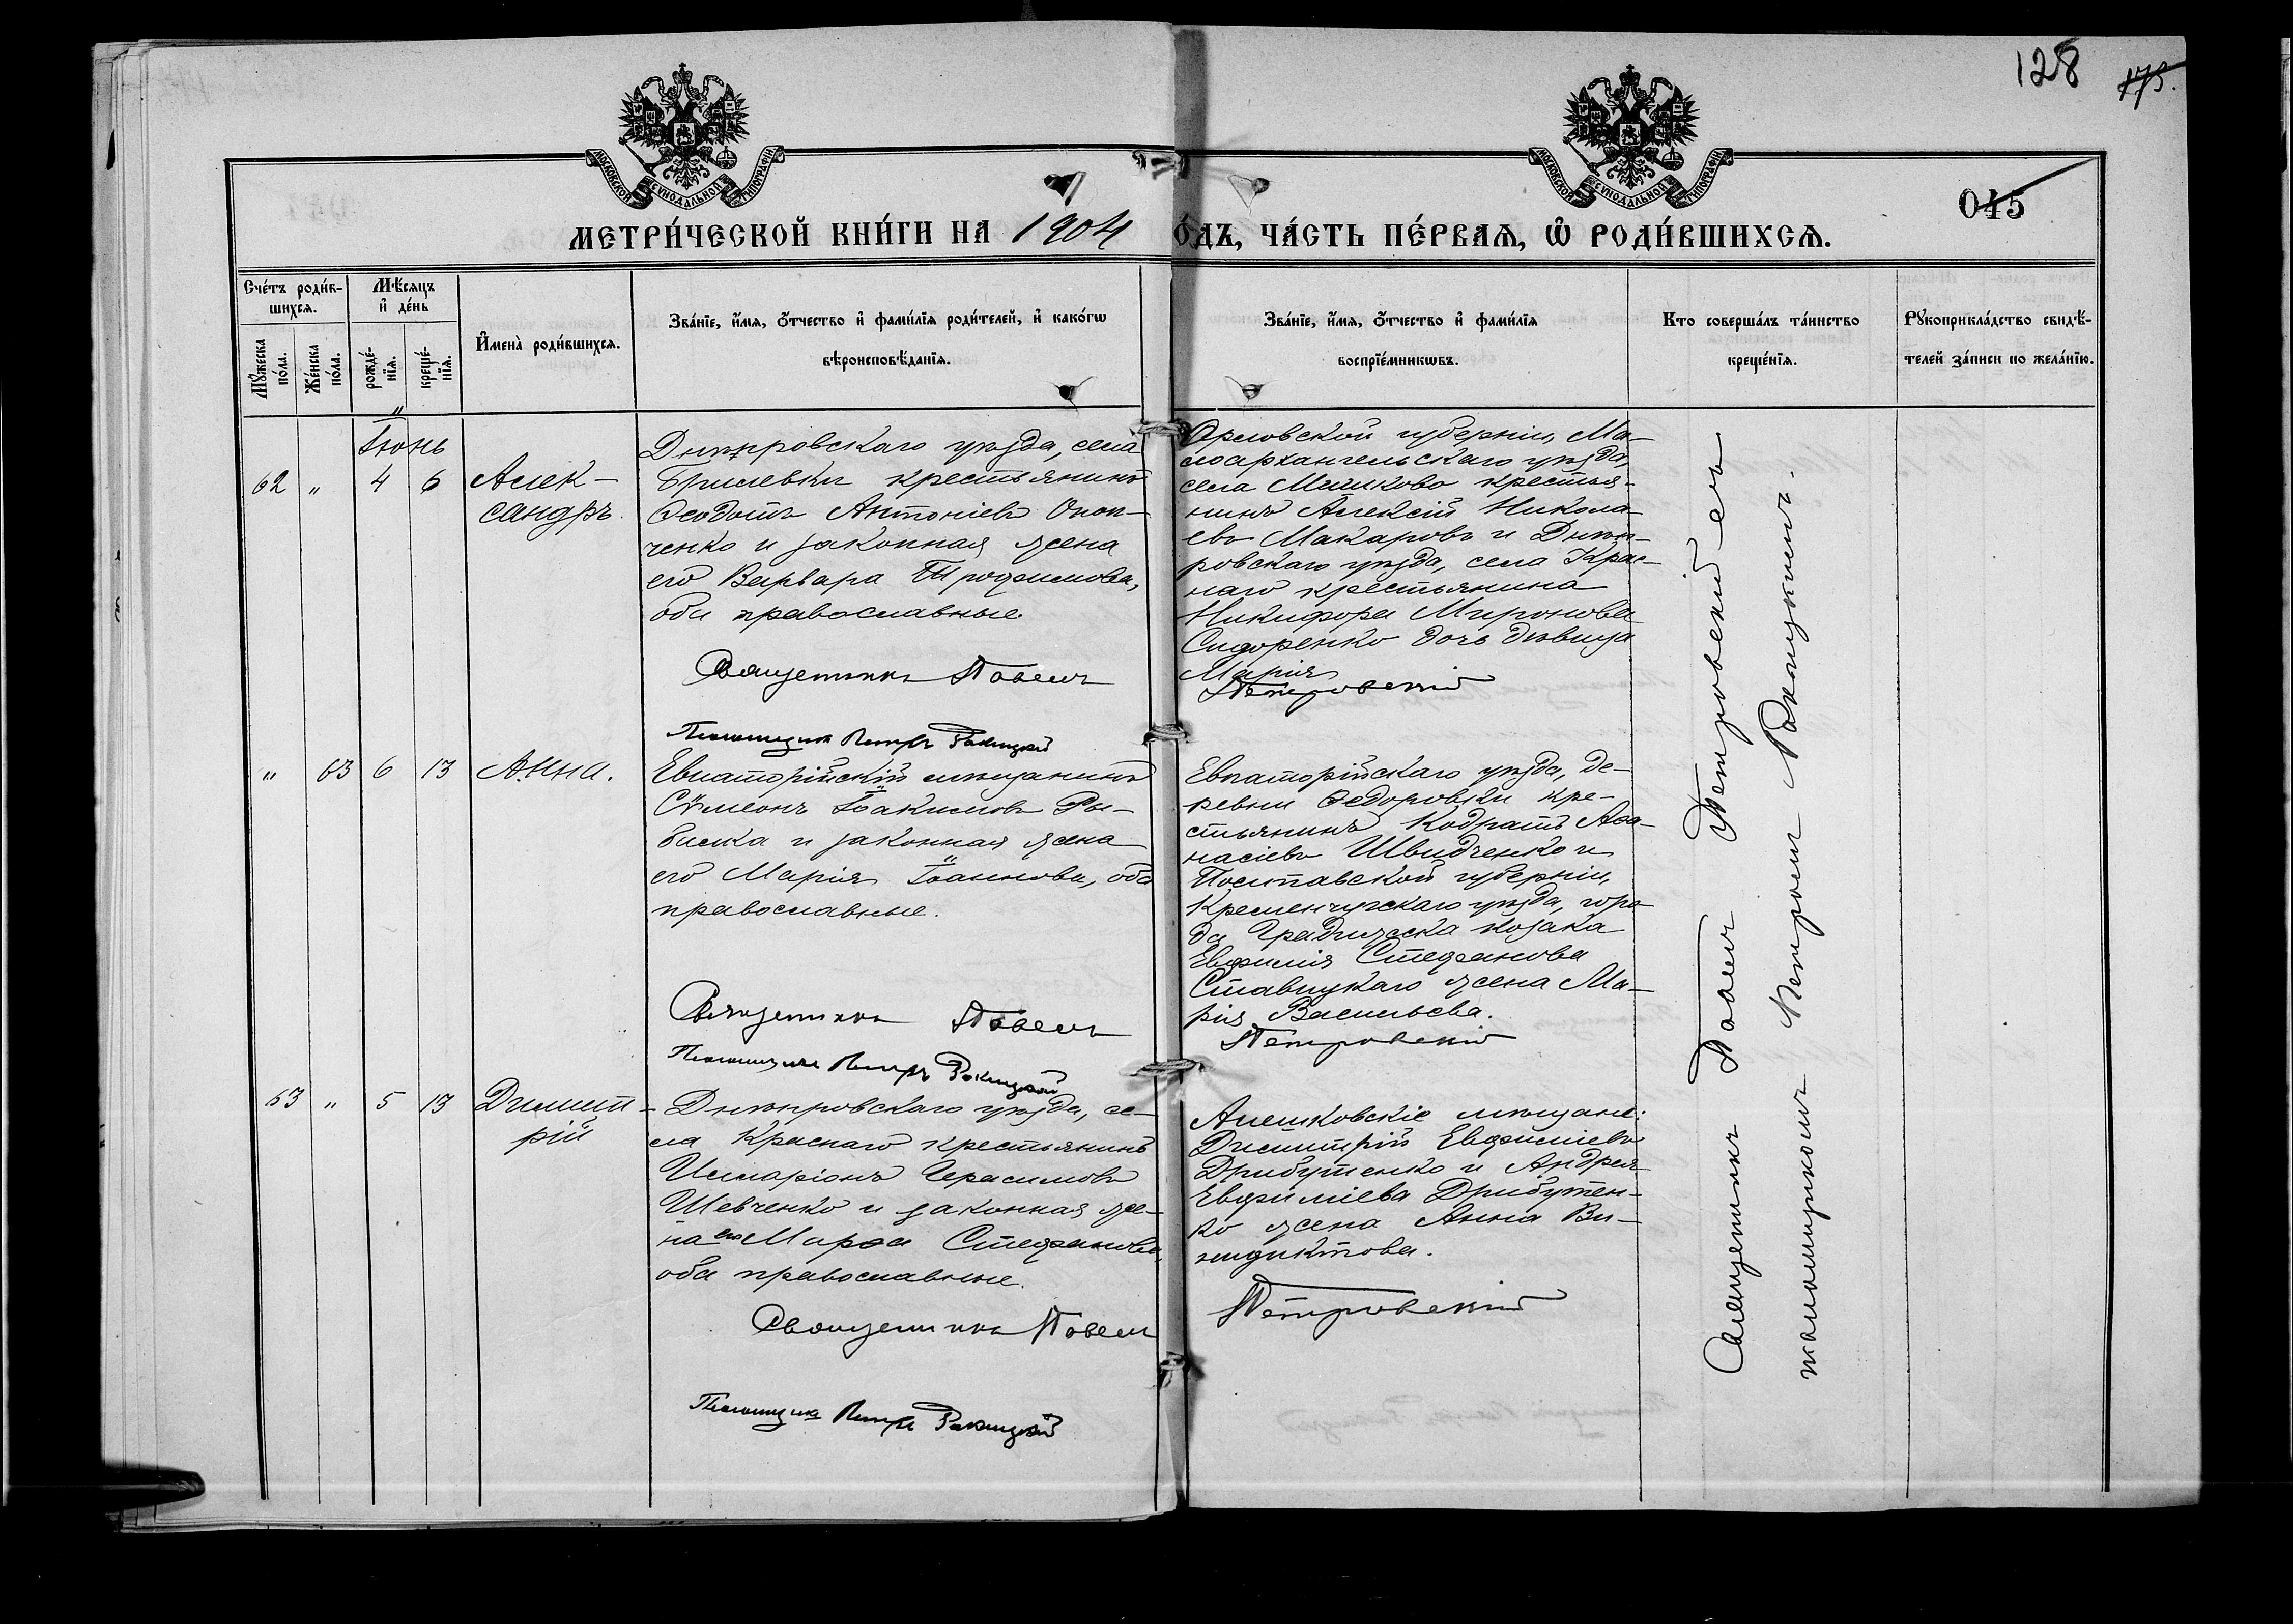 128 175.
МОСКОВСКОЙ СѴНОДАЛЬНОЙ ТИПОГРАФІИ
МОСКОВСКОЙ СѴНОДАЛЬНОЙ ТИПОГРАФІИ
045
МЕТРИ́ЧЕСКОЙ КНИ́ГИ НА 1904 О́ДЪ, ЧА́СТЬ ПЕ́РВАѦ, Ѡ҆ РОДИ́ВШИХСѦ.
Сче́тъ роди́в-
шихсѧ.
Мꙋ́жеска по́ла.
Же́нска по́ла.
Мѣ́сѧцъ
и҆ де́нь
рожде́-
нїѧ.
креще́-
нїѧ.
И҆мена̀ роди́вшихсѧ.
Зва́нїе, и҆́мѧ, ѻ҆́тчество и҆ фами́лїѧ роди́телей, и҆ како́гѡ
вѣроисповѣ́данїѧ.
Зва́нїе, и҆́мѧ, ѻ҆́тчество и҆ фами́лїѧ
воспрїе́мникѡвъ.
Кто соверша́лъ та́инство
креще́нїѧ.
Рꙋкоприкла́дство свидѣ́-
телей за́писи по жела́нїю.
Іюнь
62 " 4 6 Алек-
сандръ.
Днѣпровскаго уѣзда, села
Брилевки крестьянинъ
Ѳеодотъ Антоніевъ Оноп-
ченко и законная жена
его Варвара Трофимова,
оба православные.
Священникъ Павелъ
Псаломщикъ Петръ Ракицкій
Орловской губерніи, Ма-
лоархангельскаго уѣзда,
села крестья-
нинъ Алексій Никола-
евъ Макаровъ и Днѣп-
ровскаго уѣзда, села Крас-
наго крестьянина
Никифора Миронова
Сидоренко дочь дѣвица
Марія
Петровскій
" 63 6 13 Анна.
Евпаторійскій мѣщанинъ
Сѵмеонъ Іоакимовъ Ры-
балка и законная жена
его Марія Іоаннова, оба
православные.
Священникъ Павелъ
Псаломщикъ Петръ Ракицкій
Евпаторійскаго уѣзда, де-
ревни Ѳедоровки кре-
стьянинъ Кодратъ Аѳа-
насіевъ Швидченко и
Полтавской губерніи,
Кременчугскаго уѣзда, горо-
да Градижска козака
Евфимія Стефанова
Ставицкаго жена Ма-
рія Васильева.
Петровскій
63 " 5 13 Димит-
рій
Днѣпровскаго уѣзда, се-
ла Краснаго крестьянинъ
Иларіонъ Герасимовъ
Шевченко и законная же-
на его Марѳа Стефанова,
оба православные.
Священникъ Павелъ
Псаломщикъ Петръ Ракицкій
Алешковскіе мѣщане:
Димитрій Евфиміевъ
Дрибутенко и Андрея
Евфиміева Дрибутен-
ко жена Анна Ве-
недиктова.
Петровскій
Священникъ Павелъ Петровскій съ
псаломщикомъ Петромъ Ракицкимъ.